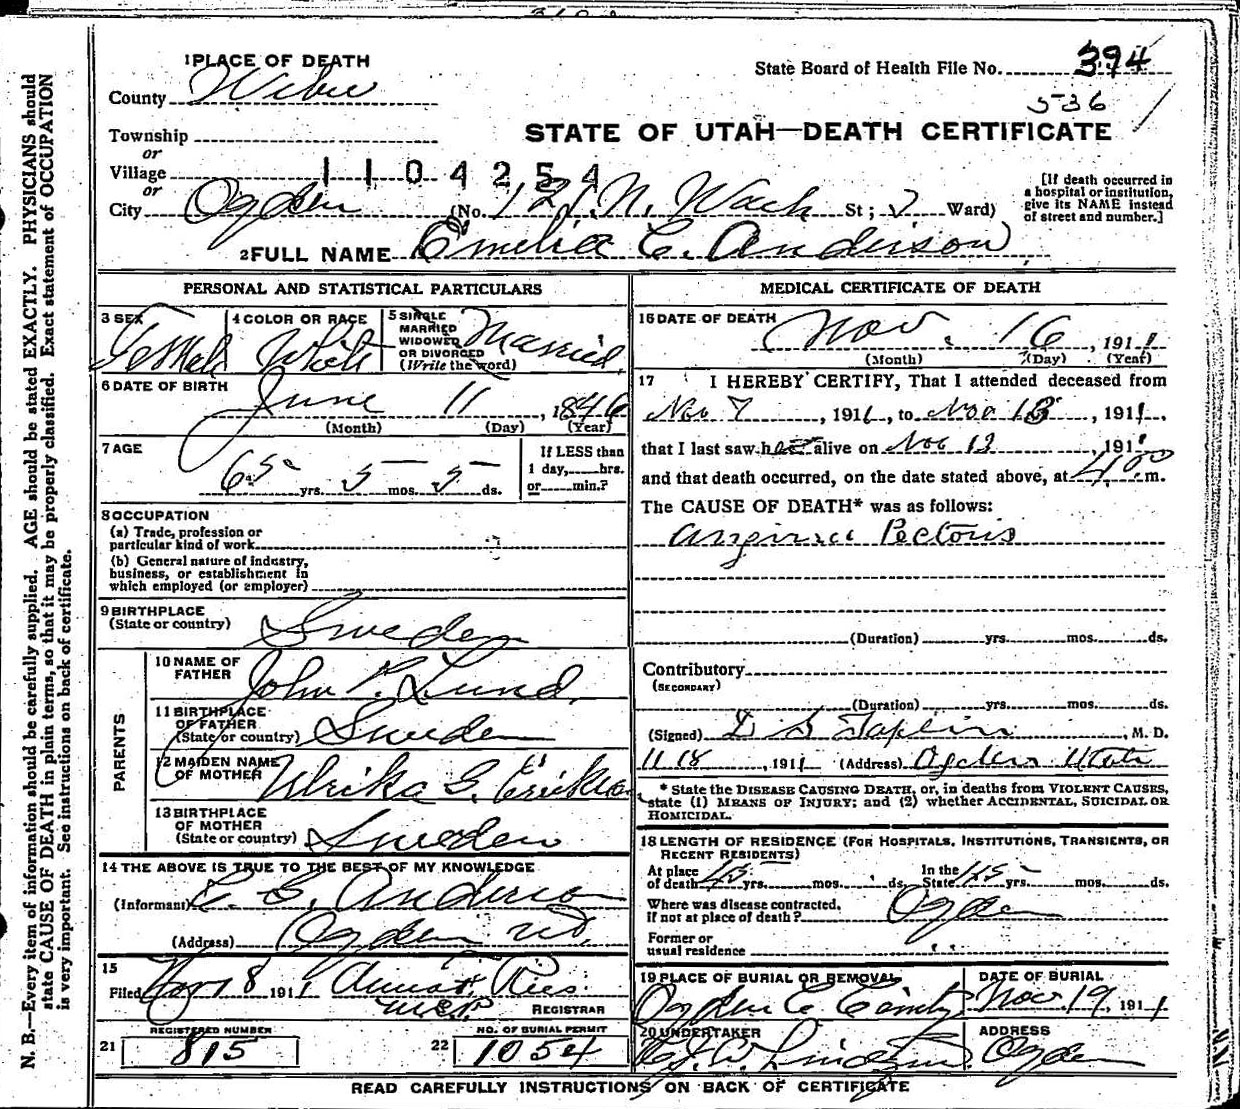 1 PLACE OF DEATH
State Board of Health File No. 394
County Weber
536
Township
STATE OF UTAH—DEATH CERTIFICATE
or
Village 1104254
or
City Ogden (No. 121 N. Wach St; 2 Ward)
[If death occurred in
a hospital or institution,
give its NAME instead
of street and number.]
2 FULL NAME Emelia C. Anderson
PERSONAL AND STATISTICAL PARTICULARS
3 SEX Female
4 COLOR OR RACE White
5 SINGLE
MARRIED
WIDOWED
OR DIVORCED
(Write the word) Married
6 DATE OF BIRTH
June 11, 1846
(Month) (Day) (Year)
7 AGE
65 yrs. 5 mos. 5 ds.
If LESS than
1 day, hrs.
or min.?
8 OCCUPATION
(a) Trade, profession or
particular kind of work
(b) General nature of industry,
business, or establishment in
which employed (or employer)
9 BIRTHPLACE
(State or country) Sweden
PARENTS
10 NAME OF
FATHER John P. Lund
11 BIRTHPLACE
OF FATHER
(State or country) Sweden
12 MAIDEN NAME
OF MOTHER Ulrika G.
13 BIRTHPLACE
OF MOTHER
(State or country) Sweden
14 THE ABOVE IS TRUE TO THE BEST OF MY KNOWLEDGE
(Informant) C. G. Anderson
(Address) Ogden Ut.
15
Filed Nov 18 1911 Anna T. Ries
REGISTRAR
REGISTERED NUMBER
21 815
NO. OF BURIAL PERMIT
22 1054
MEDICAL CERTIFICATE OF DEATH
16 DATE OF DEATH
Nov. 16, 1911
(Month) (Day) (Year)
17 I HEREBY CERTIFY, That I attended deceased from
Nov 7, 1911, to Nov 13, 1911,
that I last saw her alive on Nov 13, 1911
and that death occurred, on the date stated above, at 4.00 m.
The CAUSE OF DEATH* was as follows:
Angina Pectoris
(Duration) yrs. mos. ds.
Contributory
(SECONDARY)
(Duration) yrs. mos. ds.
(Signed) D S Taplin, M. D.
11 18, 1911 (Address) Ogden Utah
* State the DISEASE CAUSING DEATH, or, in deaths from VIOLENT CAUSES,
state (1) MEANS OF INJURY; and (2) whether ACCIDENTAL, SUICIDAL OR
HOMICIDAL.
18 LENGTH OF RESIDENCE (FOR HOSPITALS, INSTITUTIONS, TRANSIENTS, OR
RECENT RESIDENTS)
At place
of death 45 yrs. mos. ds. In the State 45 yrs. mos. ds.
Where was disease contracted,
If not at place of death? Ogden
Former or
usual residence
19 PLACE OF BURIAL OR REMOVAL
Ogden C
DATE OF BURIAL
Nov. 19, 1911
20 UNDERTAKER
ADDRESS
Ogden
READ CAREFULLY INSTRUCTIONS ON BACK OF CERTIFICATE
N. B.—Every item of information should be carefully supplied. AGE should be stated EXACTLY. PHYSICIANS should
state CAUSE OF DEATH in plain terms, so that it may be properly classified. Exact statement of OCCUPATION
is very important. See instructions on back of certificate.